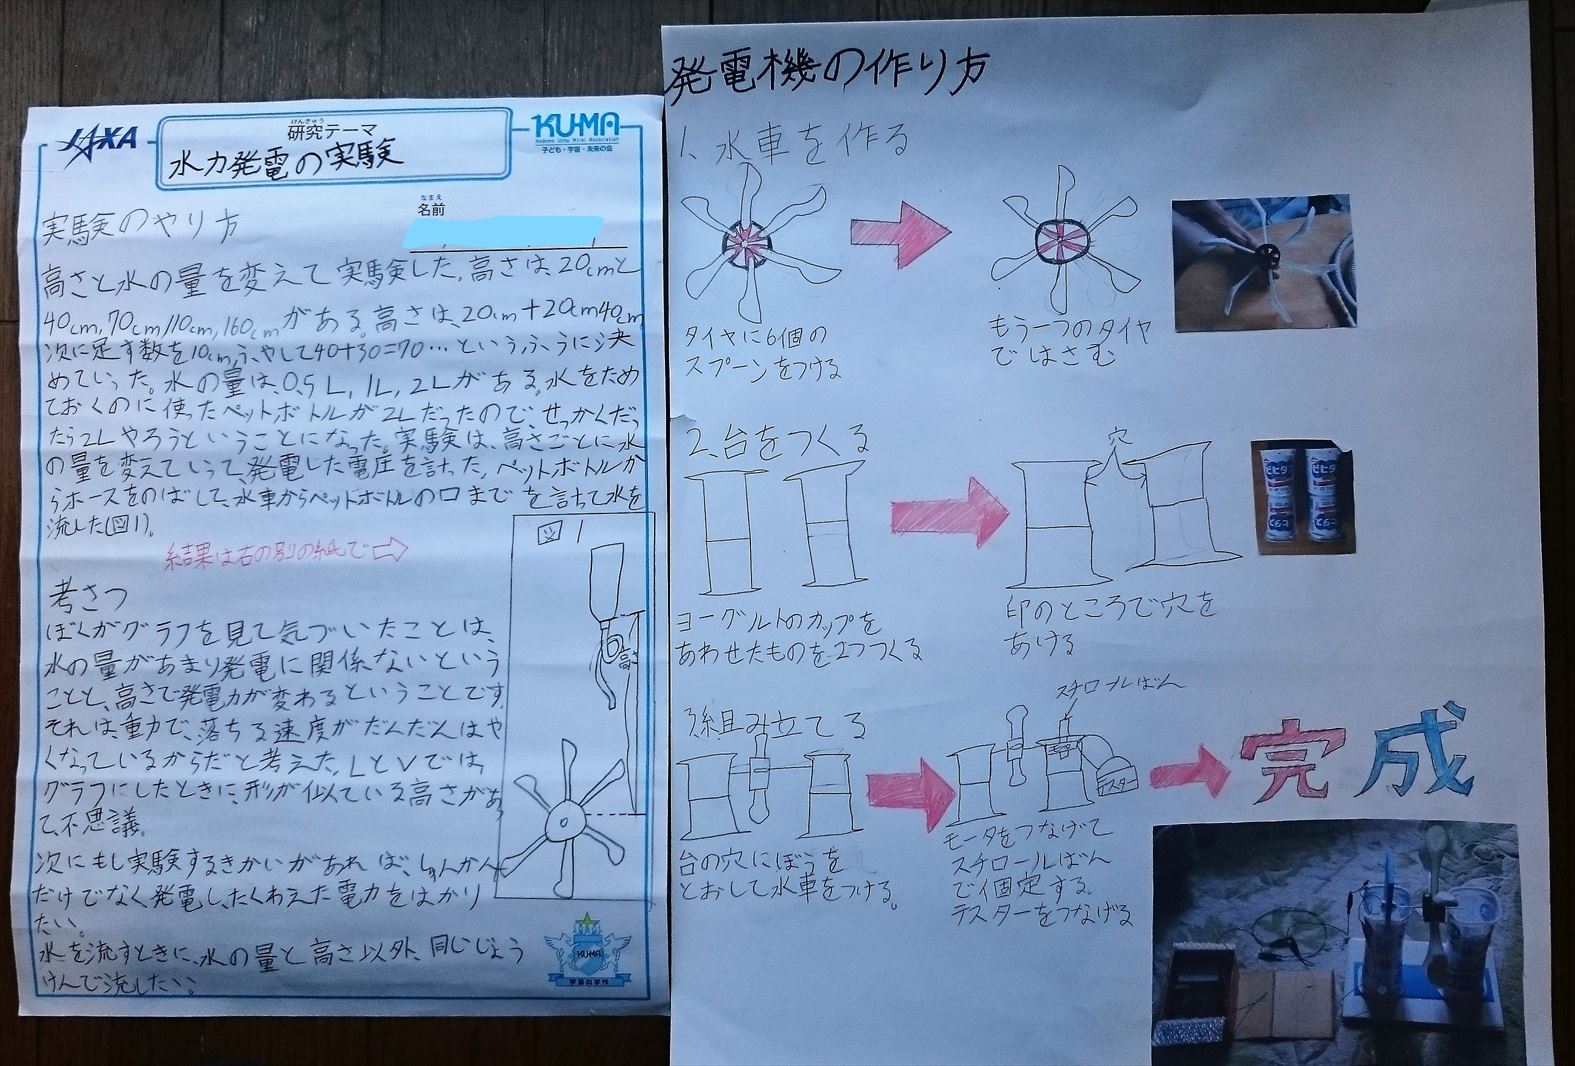 JAXA
けんきゅう
研究テーマ
水力発電の実験
KU-MA
Kodomo Uchu Mirai Association
子ども・宇宙・未来の会
なまえ
名前
実験のやり方
高さと水の量を変えて実験した。高さは、20cmと
40cm,70cm,110cm,160cmがある。高さは、20cm+20cm40cm
次に足す数を10cmふやして40+30=70…というふうに決
めていった。水の量は、0.5L,1L,2Lがある。水をため
ておくのに使ったペットボトルが2Lだったので、せっかくだっ
たら2Lやろうということになった。実験は、高さごとに水
の量を変えていって、発電した電圧を計った。ペットボトルか
らホースをのばして、水車からペットボトルの口までを計って水を
流した(図1)。
結果は右の別の紙で⇨
図1
高さ
考さつ
ぼくがグラフを見て気づいたことは、
水の量があまり発電に関係ないという
ことと、高さで発電力が変わるということです。
それは、重力で、落ちる速度がだんだんはや
くなっているからだと考えた。LとVでは、
グラフにしたときに、形が似ている高さがあっ
て不思議。
次にもし実験するきかいがあれば、しゅんかん
だけでなく発電し、たくわえた電力をはかり
たい。
水を流すときに、水の量と高さ以外、同じじょう
けんで流したい。
KUMA
宇宙の学校
発電機の作り方
1、水車を作る
タイヤに6個の
スプーンをつける
もう一つのタイヤ
ではさむ
2、台をつくる
穴
ヨーグルトのカップを
あわせたものを2つつくる
印のところで穴を
あける
ビヒダス
ビヒダス
3組み立てる
スチロールばん
テスター
台の穴にぼうを
とおして水車をつける。
モータをつなげて
スチロールばん
で個定する。
テスターをつなげる
完成